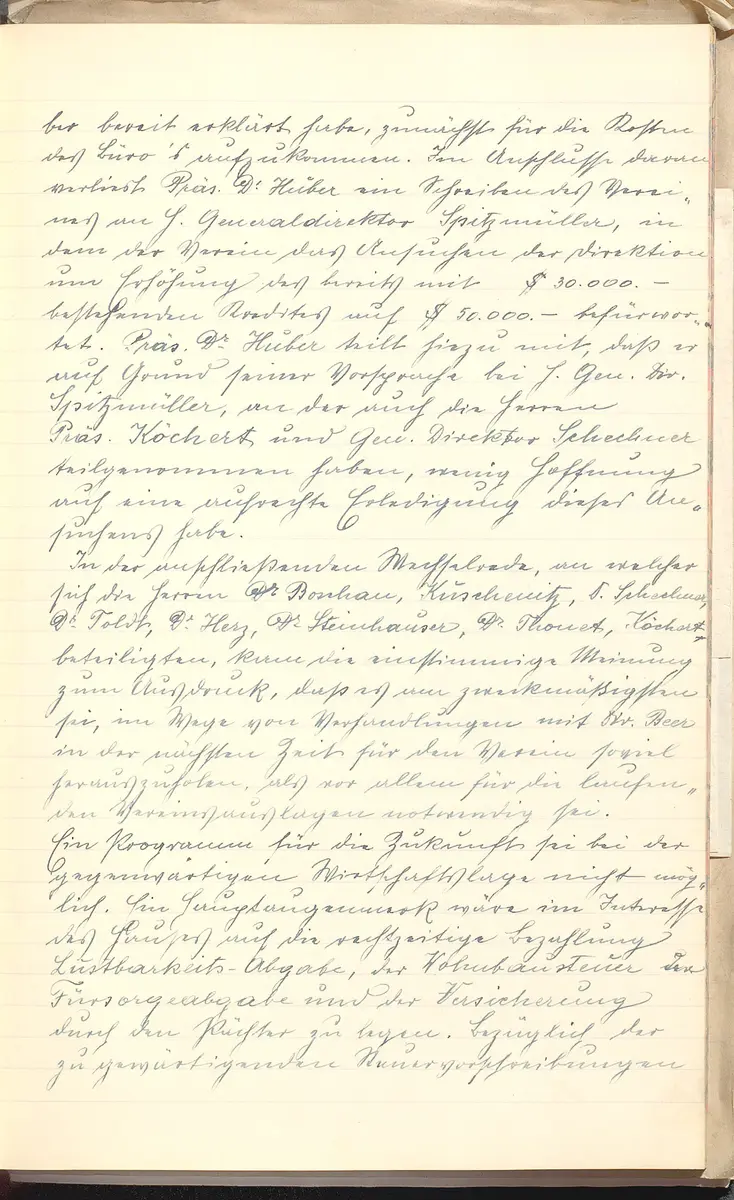 ber bereit erklärt habe, zunächst für die Kosten
des Büro's aufzukommen. Im Anschlusse daran
verliest Präs. Dr Huber ein Schreiben des Verei„
nes an H. Generaldirektor Spitzmüller, in
dem der Verein das Ansuchen der Direktion
um Erhöhung des bereits mit $ 30.000.–
bestehenden Kredites auf $ 50.000.– befürwor„
tet. Präs. Dr Huber teilt hiezu mit, daß er
auf Grund seiner Vorsprache bei H. Gen. Dir.
Spitzmüller, an der auch die Herren
Präs. Köchert und Gen. Direktor Schechner
teilgenommen haben, wenig Hoffnung
auf eine aufrechte Erledigung dieses An„
suchens habe.
In der anschließenden Wechselrede, an welcher
sich die Herren Dr Bonhan, Kuschenitz, D. Schechner,
Dr Toldt, Dr Herz, Dr Steinhauser, Dr Thonet, Köchert
beteiligten, kam die einstimmige Meinung
zum Ausdruck, daß es am zweckmäßigsten
sei, im Wege von Verhandlungen mit Dr. Beer
in der nächsten Zeit für den Verein soviel
herauszuholen, als vor allem für die laufen„
den Vereinsauslagen notwendig sei.
Ein Programm für die Zukunft sei bei der
gegenwärtigen Wirtschaftslage nicht mög„
lich. Ein Hauptaugenmerk wäre im Interesse
des Hauses auf die rechtzeitige Bezahlung
Lustbarkeits-Abgabe, der Wohnbausteuer der
Fürsorgeabgabe und der Versicherung
durch den Pächter zu legen. Bezüglich der
zu gewärtigenden Steuervorschreibungen